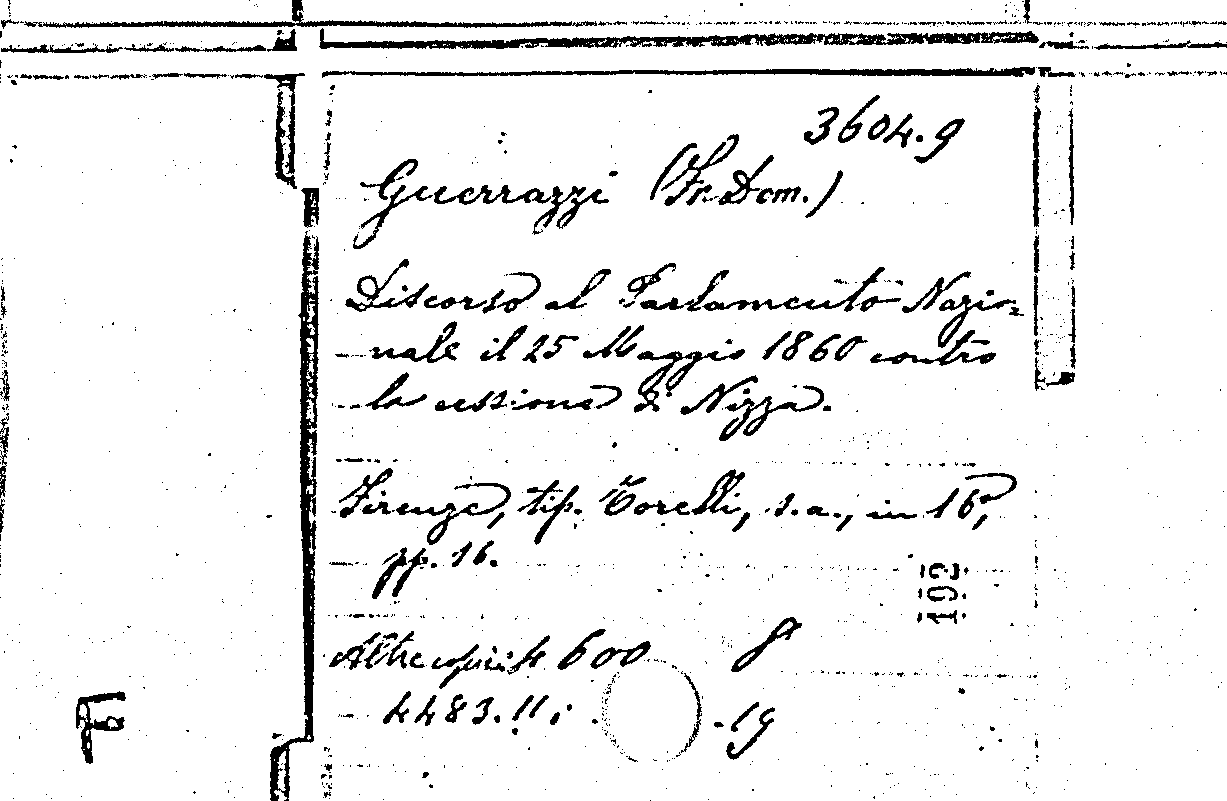 3604.9
Guerrazzi (Fr. Dom.)
Discorso al Parlamento Nazio-
nale il 25 Maggio 1860 contro
la cessione di Nizza.
Firenze, tip. Torelli, s.a., in 16º,
pp. 16.
192
Altre copie 600
4483.11; .19
F